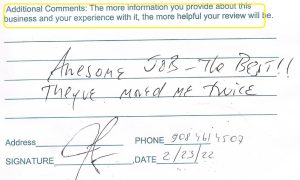 Additional Comments: The more information you provide about this
business and your experience with it, the more helpful your review will be.
Awesome JOB - The Best!!
They've moved me twice
Address
PHONE 908 461 4507
SIGNATURE
DATE 2/23/22